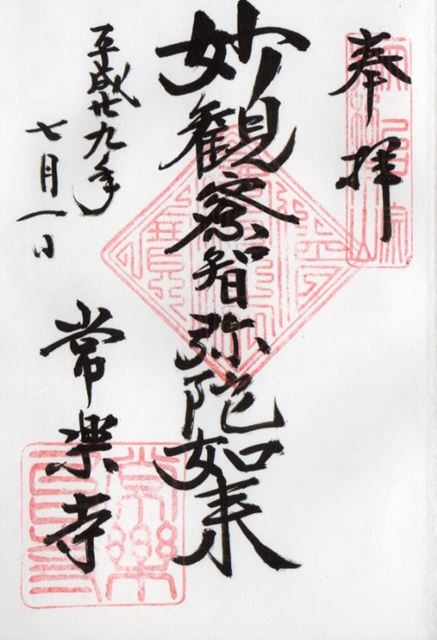 奉拝
妙観察智弥陀如来
平成廿九年
七月一日
常楽寺